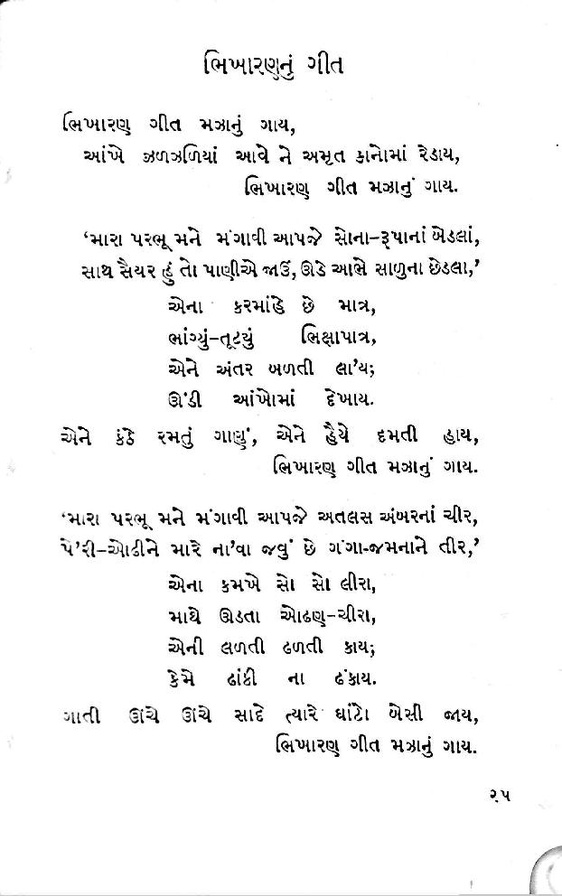 ભિખારણનું ગીત
ભિખારણ ગીત મઝાનું ગાય,
આંખે ઝળઝળિયાં આવે ને અમૃત કાનોમાં રેડાય,
ભિખારણ ગીત મઝાનું ગાય.
‘મારા પરભૂ મને મંગાવી આપજે સોના-રૂપાનાં બેડલાં,
સાથ સૈયર હું તો પાણીએ જાઉં, ઊડે આભે સાળુના છેડલા,’
એના કરમાંહે છે માત્ર,
ભાંગ્યું-તૂટયું ભિક્ષાપાત્ર,
એને અંતર બળતી લા’ય;
ઊંડી આંખોમાં દેખાય.
એને કંઠે રમતું ગાણું, એને હૈયે દમતી હાય,
ભિખારણ ગીત મઝાનું ગાય.
‘મારા પરભૂ મને મંગાવી આપજે અતલસ અંબરનાં ચીર,
પે’રી-ઓઢીને મારે ના’વા જવું છે ગંગા-જમનાને તીર,’
એના કમખે સો સો લીરા,
માથે ઊડતા ઓઢણ-ચીરા,
એની લળતી ઢળતી કાય;
કેમે ઢાંકી ના ઢંકાય.
ગાતી ઊંચે ઊંચે સાદે ત્યારે ઘાંટો બેસી જાય,
ભિખારણ ગીત મઝાનું ગાય.
૨૫